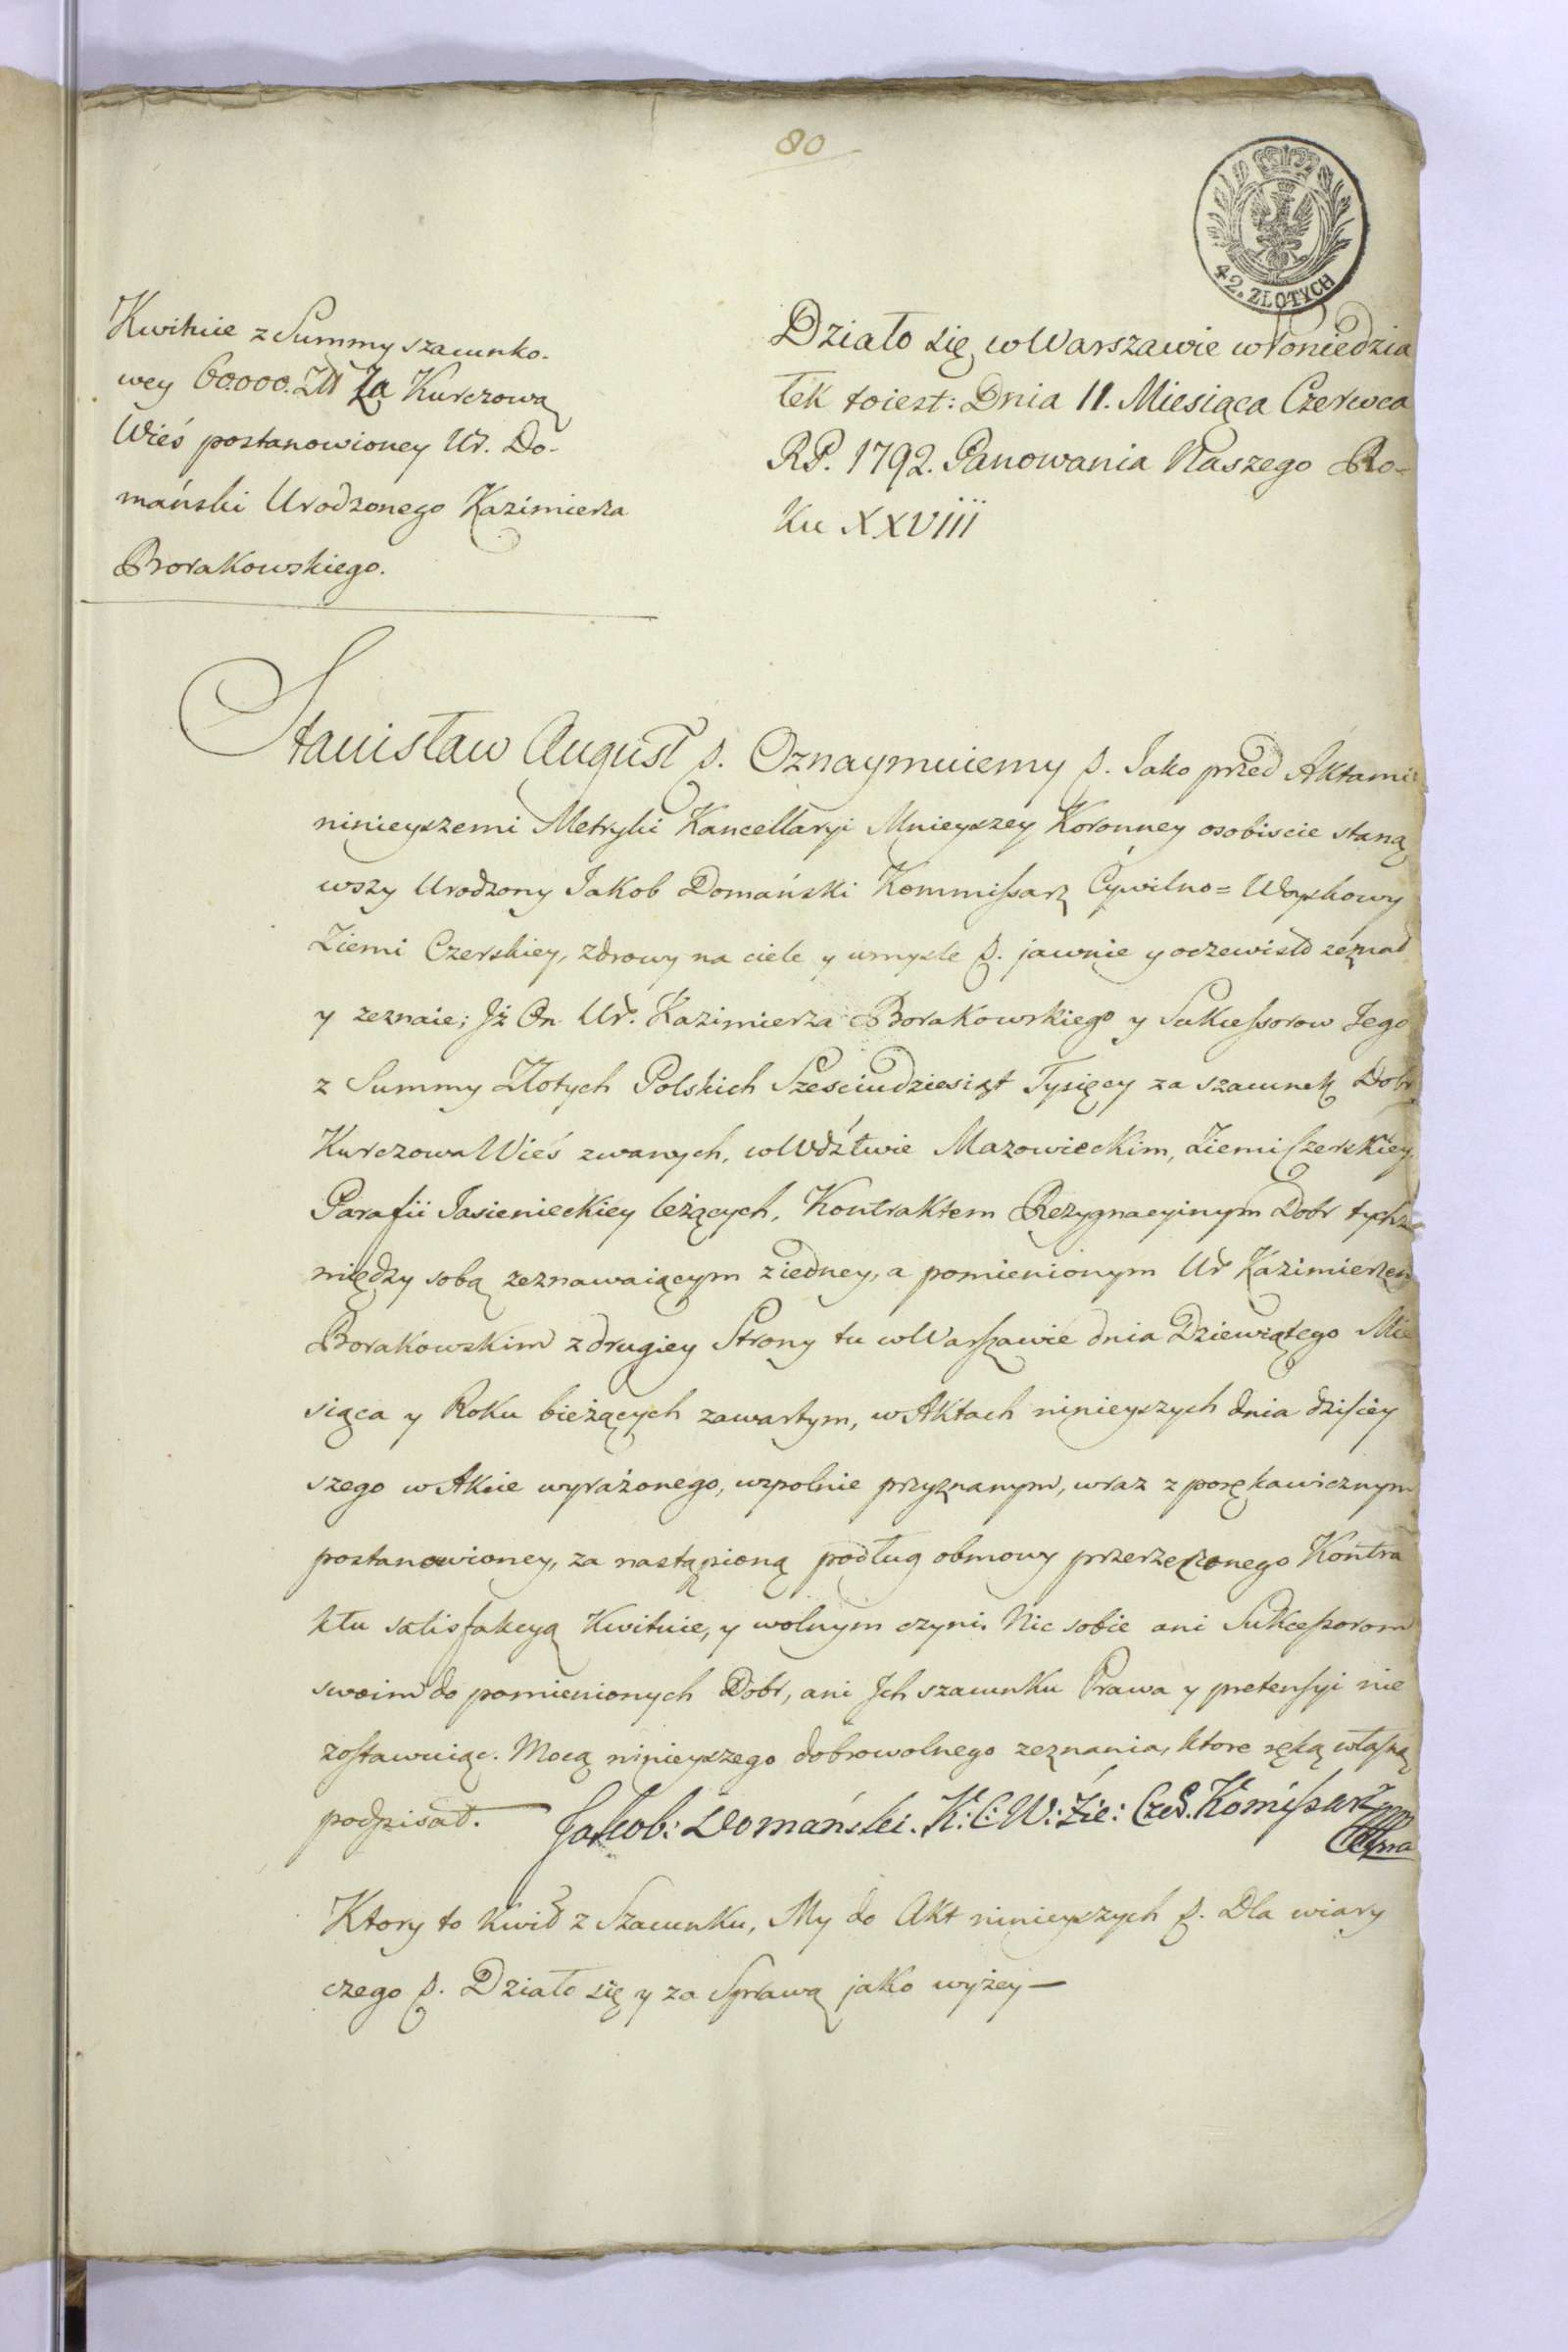 80
42. ZŁOTYCH
Kwituie z Summy szacunko-
wey 60.000. Złł za Kurczową
Wieś postanowioney Ur. Do-
mański Urodzonego Kazimierza
Borakowskiego.
Działo się w Warszawie w Poniedzia
łek toiest: Dnia 11. Miesiąca Czerwca
RP. 1792. Panowania Naszego Ro-
ku XXVIII
Stanisław August p. Oznaymuiemy p. Jako przed Aktami
ninieyszemi Metryki Kancellaryi Mnieyszey Koronney osobiscie staną
wszy Urodzony Jakob Domański Kommissarz Cywilno=Woyskowy
Ziemi Czerskiey, zdrowy na ciele y umysle p. jawnie y oczewisto zeznał
y zeznaie; Jż On Ur. Kazimierza Borakowskiego y Sukcessorow Jego
z Summy Złotych Polskich Szesciudziesiąt Tysięcy za szacunek Dobr
Kurczowa Wieś zwanych, w Wdztwie Mazowieckim, Ziemi Czerskiey
Parafii Jasienieckiey leżących, Kontraktem Rezygnacyinym Dobr tychże
między sobą zeznawaiącym z iedney, a pomienionym Ur Kazimierzem
Borakowskim z drugiey Strony tu w Warszawie dnia Dziewiątego Mie
siąca y Roku bieżących zawartym, w Aktach ninieyszych dnia dzisiey
szego w Akcie wyrażonego, wspolnie przyznanym, wraz z porękawicznym
postanowioney, za nastąpioną podług obmowy przerzeczonego Kontra
ktu satisfakcyą Kwituie, y wolnym czyni. Nic sobie ani Sukcessorom
swoim do pomienionych Dobr, ani Jch szacunku Prawa y pretensyi nie
zostawuiąc. Mocą ninieyszego dobrowolnego zeznania, ktore ręką własną
podpisał. Jakob: Domański. K: C: W: Zie: Czer. Komissarz
Ktory to Kwit z Szacunku, My do Akt ninieyszych p. Dla wiary
czego p. Działo się y za Sprawą jako wyżey —